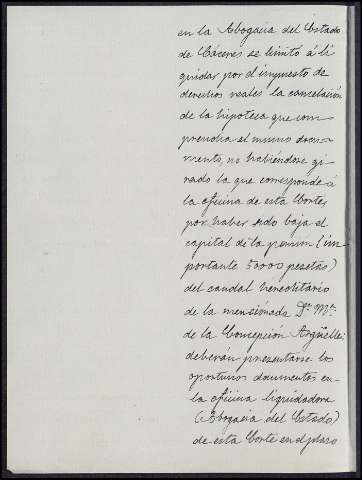 en la Abogacia del Estado
de Cáceres se limitó á li
quidar por el impuesto de
derechos reales la cancelación
de la hipoteca que com
prendia el mismo docu-
mento, no habiendose gi
rado la que corresponde á
la oficina de esta Corte
por haber sido baja el
capital de la pension (im
portante 50000 pesetas)
del caudal hereditario
de la mencionada Dª. Mª.
de la Concepción Argüelles;
deberán presentarse los
oportunos documentos en
la oficina liquidadora
(Abogacia del Estado)
de esta Corte en el plazo